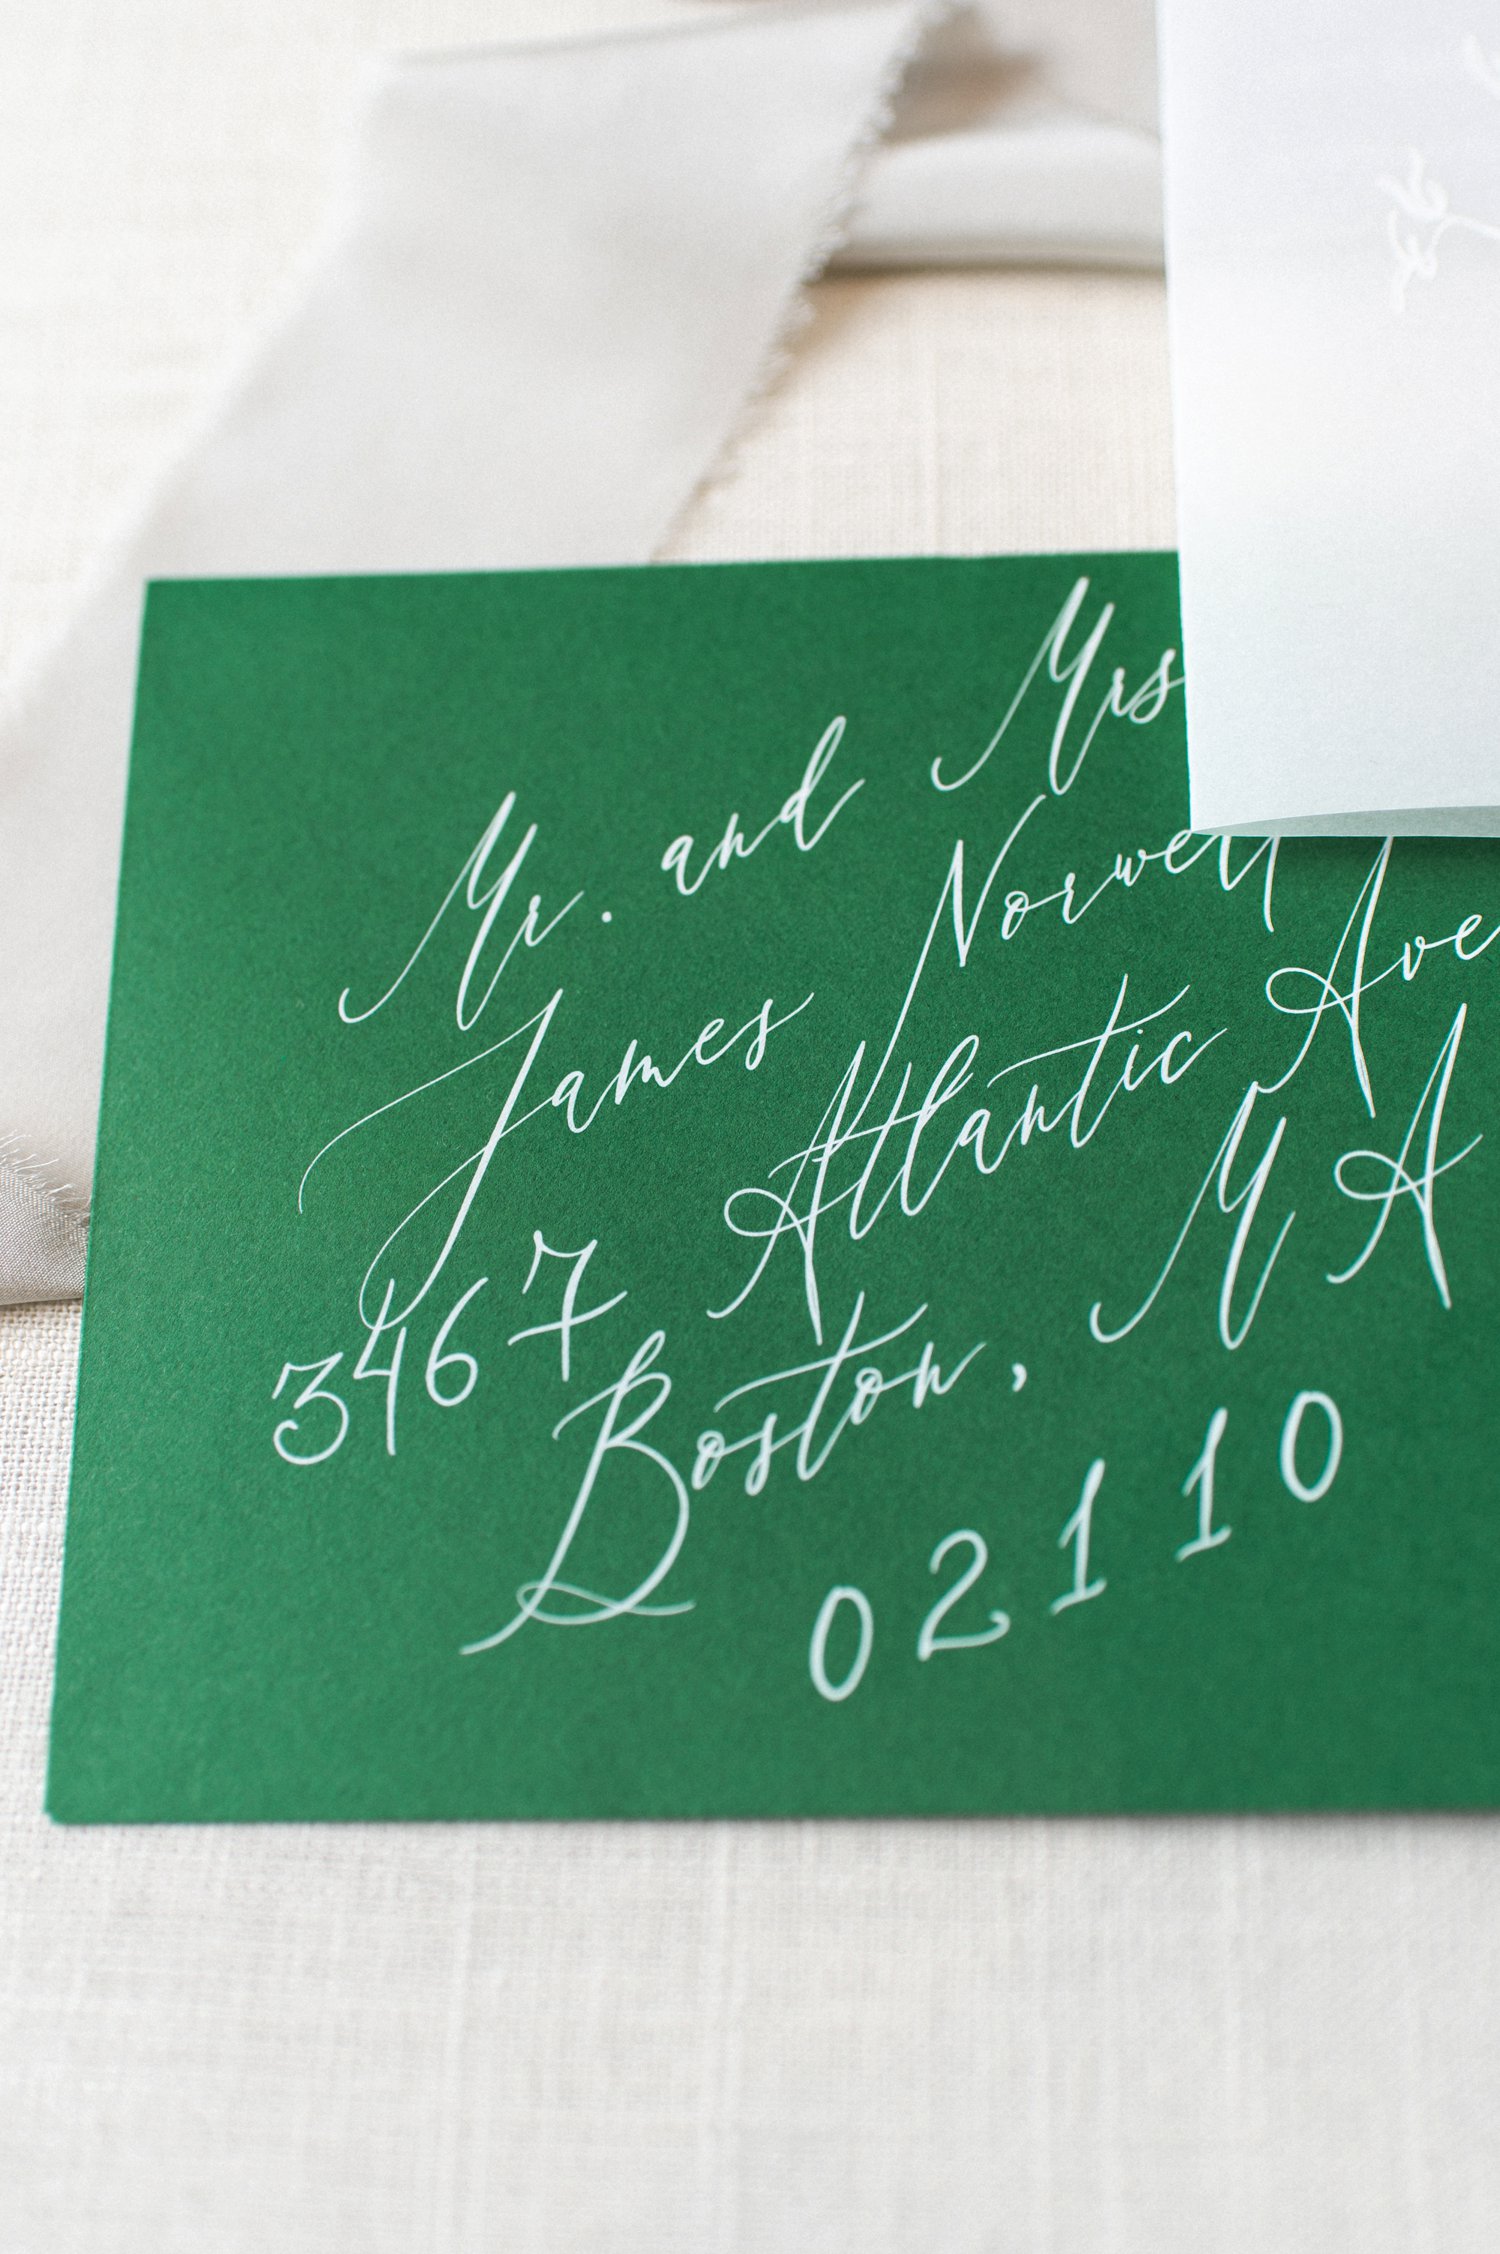 Mr. and Mrs
James Norwell
3467 Atlantic Ave
Boston, MA
02110